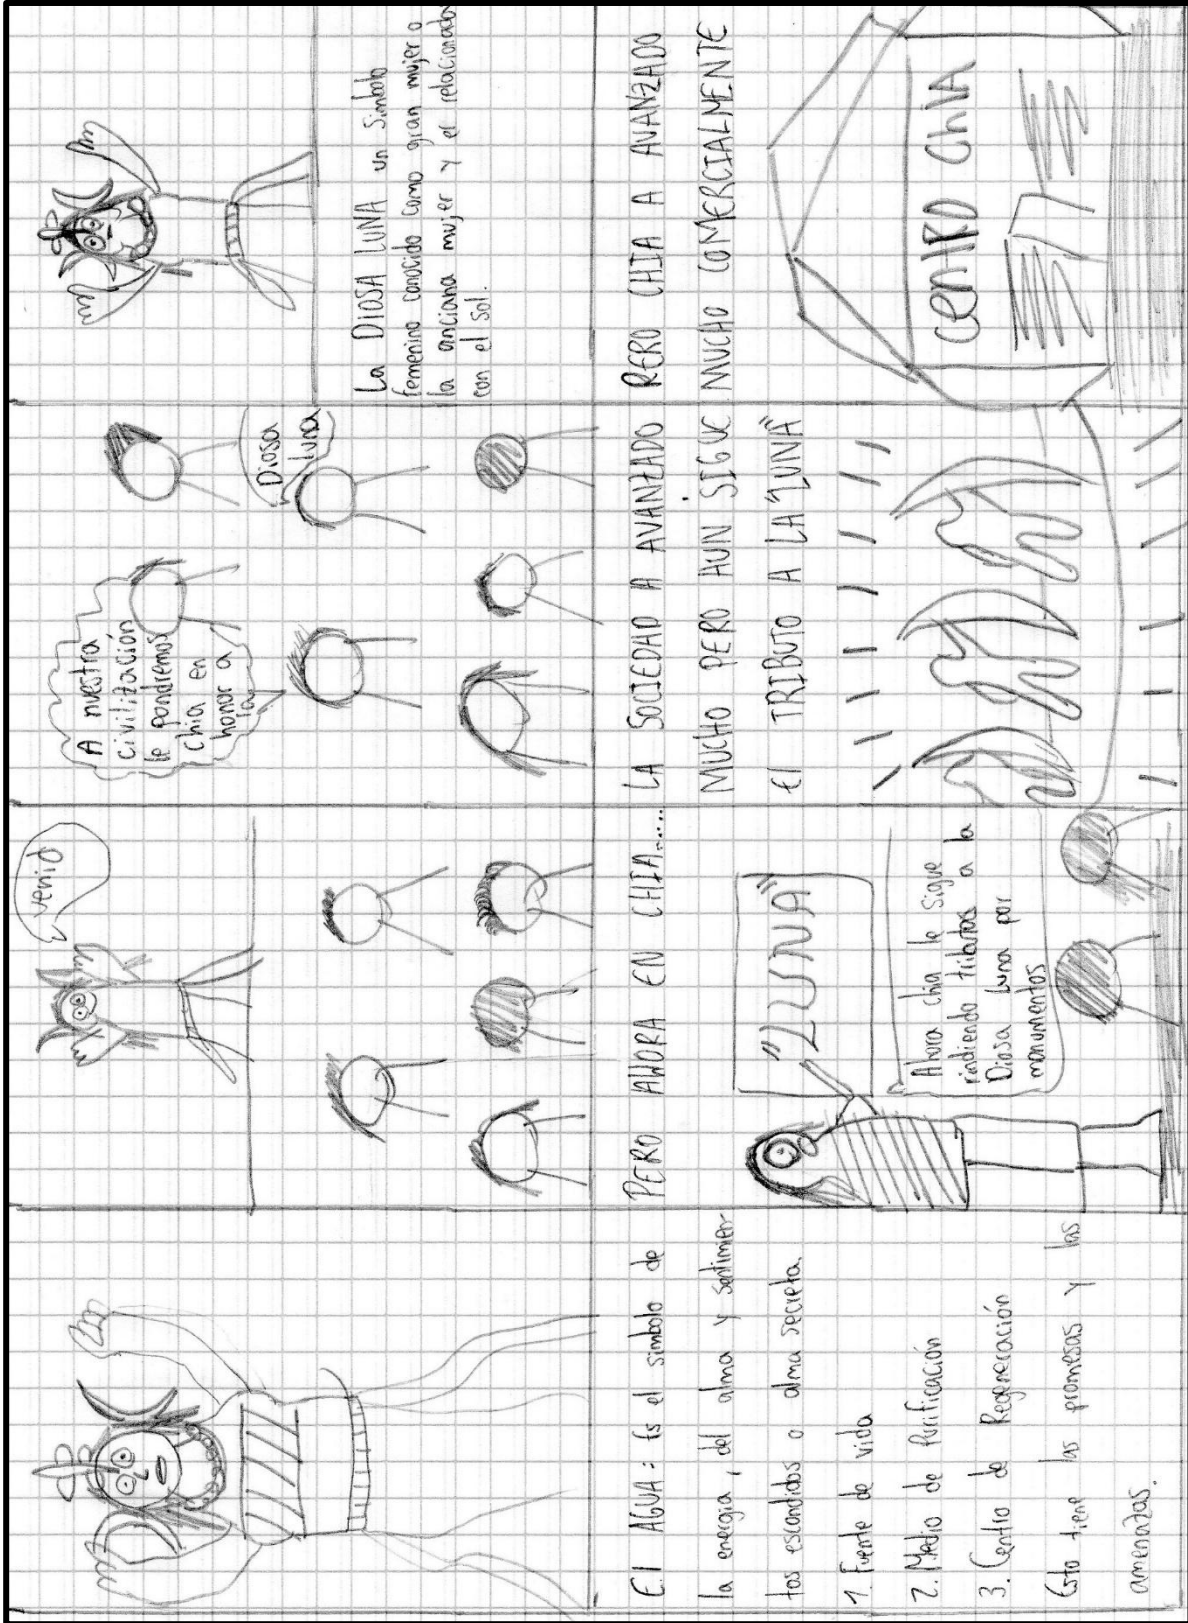 venid
A nuestra
civilización
le pondremos
chia en
honor a
la
Diosa
luna
La DIOSA LUNA un Simbolo
femenino conocido como gran mujer o
la anciana mujer y el relacionado
con el sol.
El AGUA: Es el simbolo de
la energia, del alma y sentimien-
tos escondidos o alma secreta.
1. Fuente de vida
2. Medio de Purificación
3. Centro de Regeneración
Esto tiene las promesas y las
amenazas.
PERO AHORA EN CHIA.....
"LUNA"
Ahora chia le sigue
rindiendo tributos a la
Diosa Luna por
monumentos
LA SOCIEDAD A AVANZADO
MUCHO PERO AUN SIGUE
El TRIBUTO A LA "LUNA"
RERO CHIA A AVANZADO
MUCHO COMERCIALMENTE
CENTRO ChIA